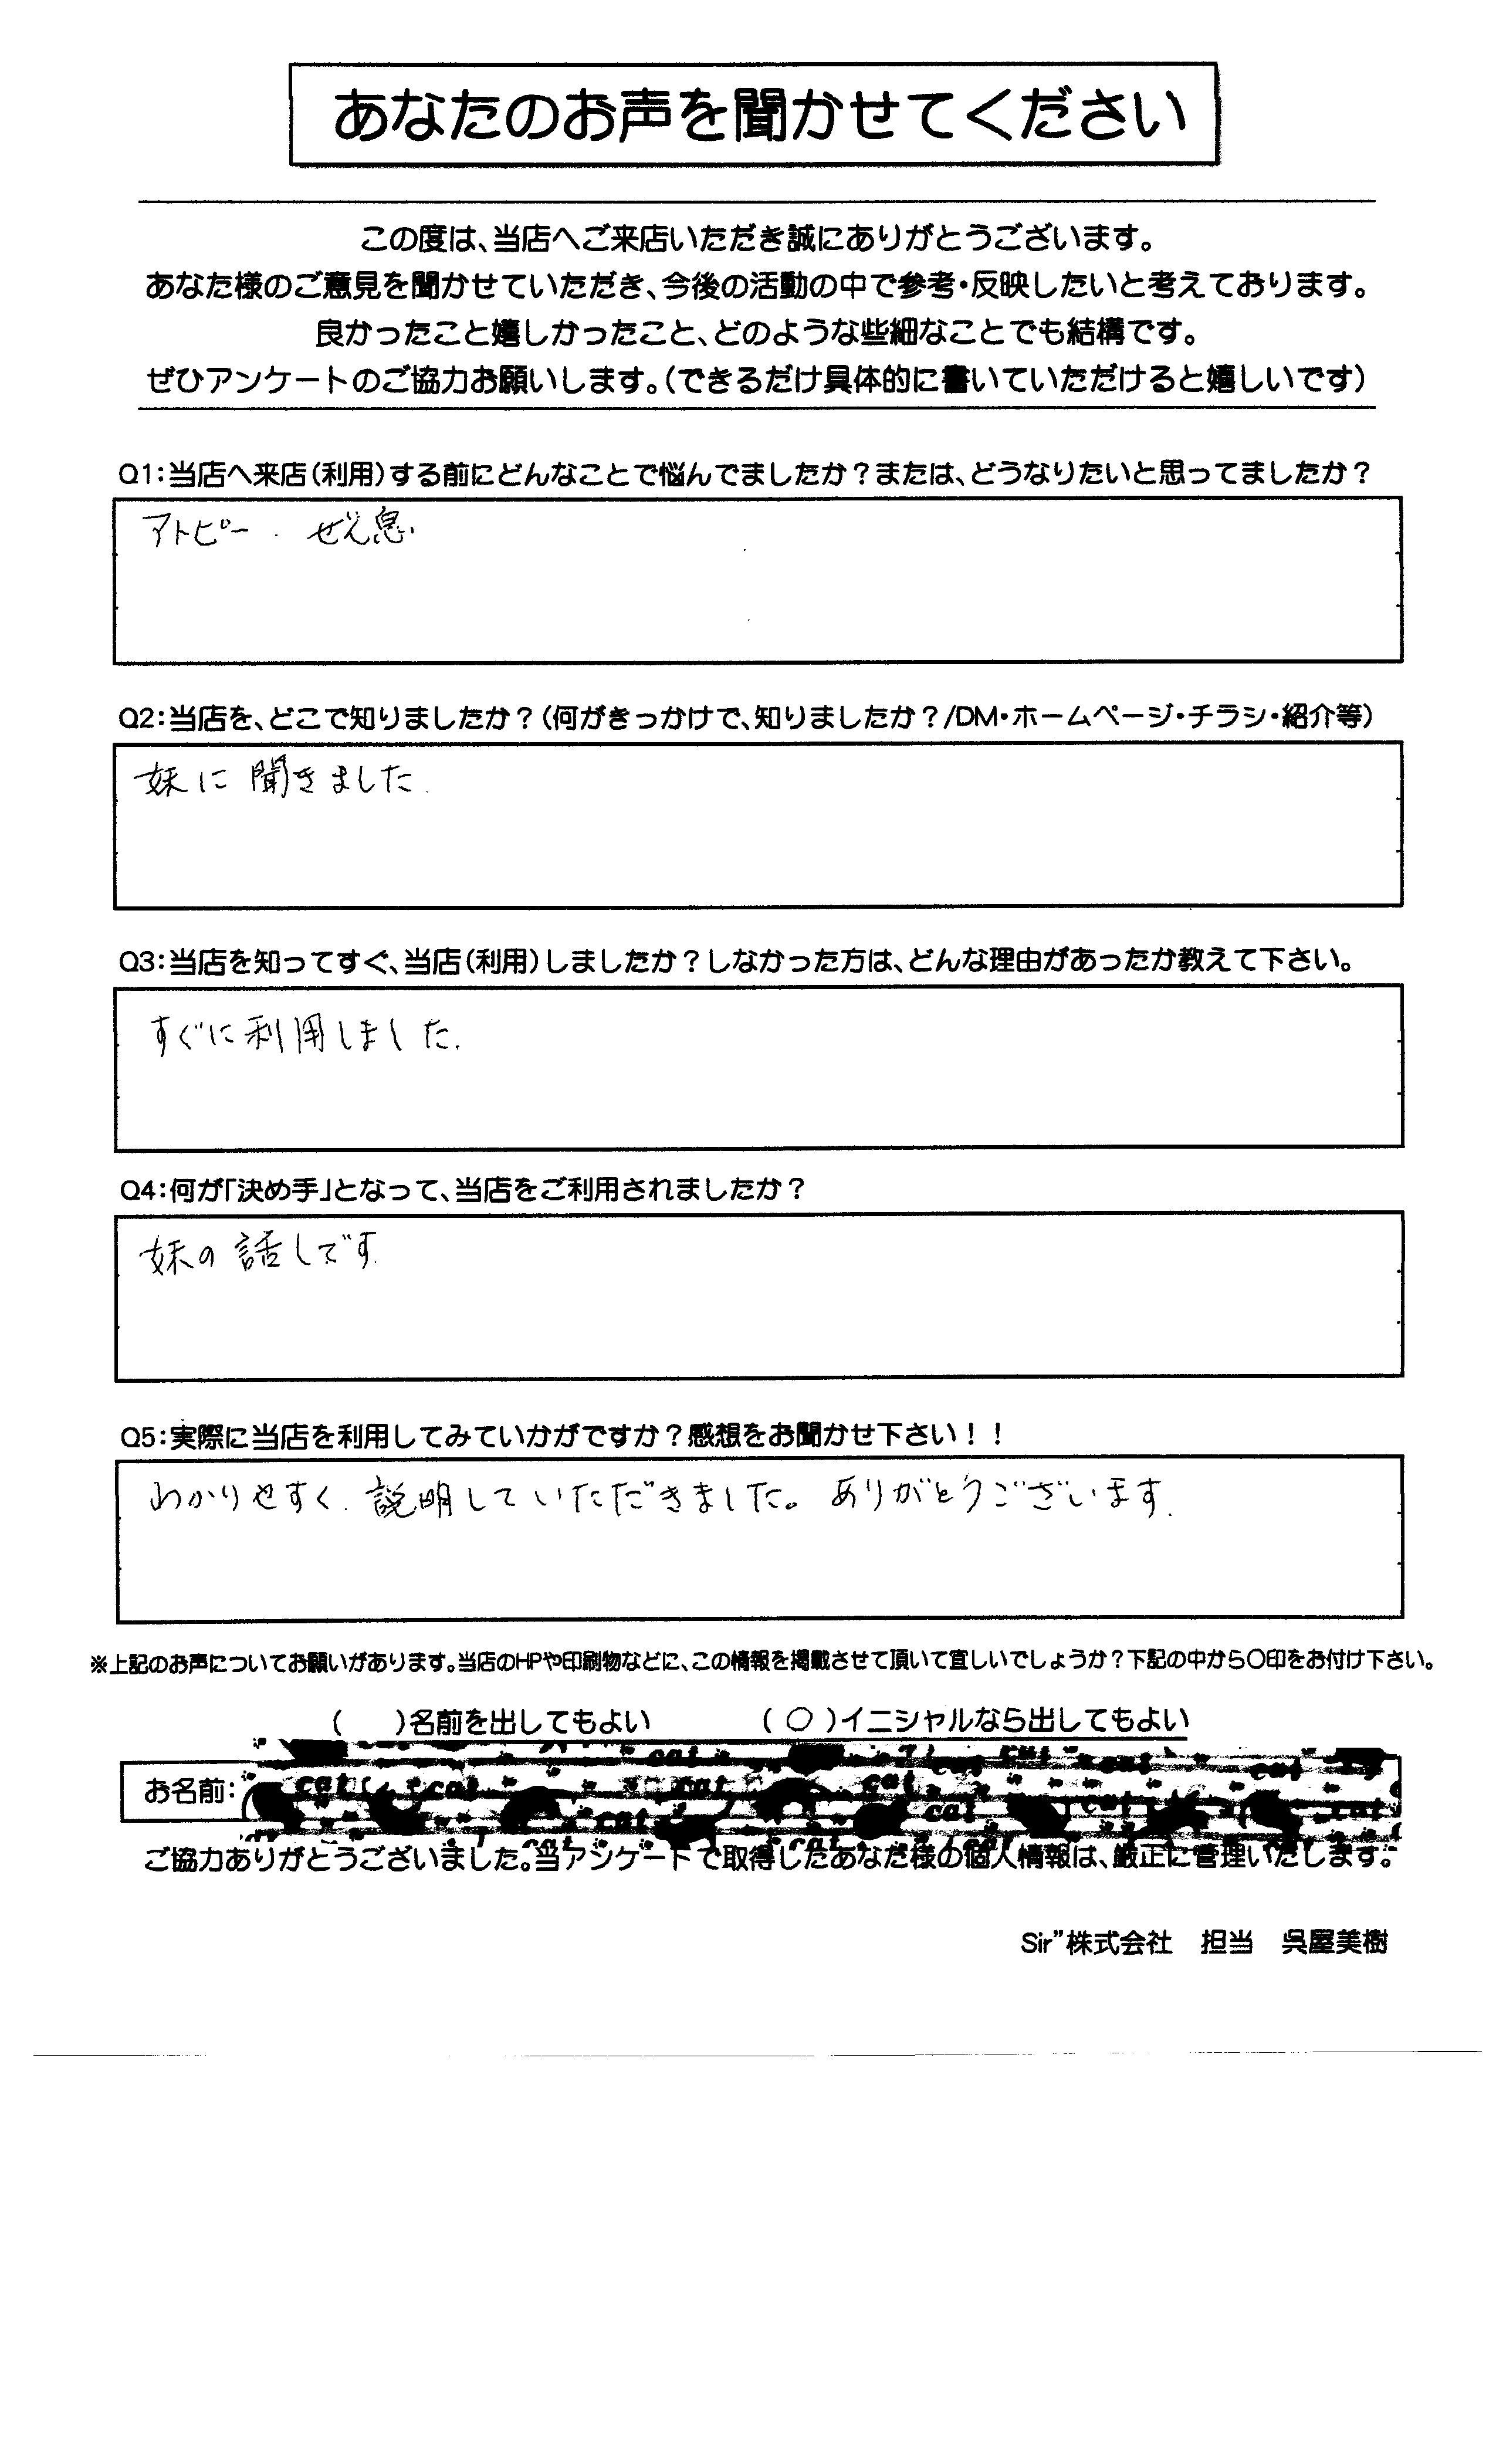 あなたのお声を聞かせてください
この度は、当店へご来店いただき誠にありがとうございます。
あなた様のご意見を聞かせていただき、今後の活動の中で参考・反映したいと考えております。
良かったこと嬉しかったこと、どのような些細なことでも結構です。
ぜひアンケートのご協力お願いします。(できるだけ具体的に書いていただけると嬉しいです)
Q1:当店へ来店(利用)する前にどんなことで悩んでましたか?または、どうなりたいと思ってましたか?
アトピー . ぜん息
Q2:当店を、どこで知りましたか?(何がきっかけで、知りましたか?/DM・ホームページ・チラシ・紹介等)
妹に聞きました.
Q3:当店を知ってすぐ、当店(利用)しましたか?しなかった方は、どんな理由があったか教えて下さい。
すぐに利用しました.
Q4:何が「決め手」となって、当店をご利用されましたか?
妹の話しです.
Q5:実際に当店を利用してみていかがですか?感想をお聞かせ下さい!!
わかりやすく.説明していただきました。ありがとうございます.
※上記のお声についてお願いがあります。当店のHPや印刷物などに、この情報を掲載させて頂いて宜しいでしょうか?下記の中から〇印をお付け下さい。
( )名前を出してもよい (〇)イニシャルなら出してもよい
cat cat cat cut cat cat
お名前: cat cat cat cat cat cat cat cat
cat cat cat cat
ご協力ありがとうございました。当アンケートで取得したあなた様の個人情報は、厳正に管理いたします。
Sir”株式会社 担当 呉屋美樹